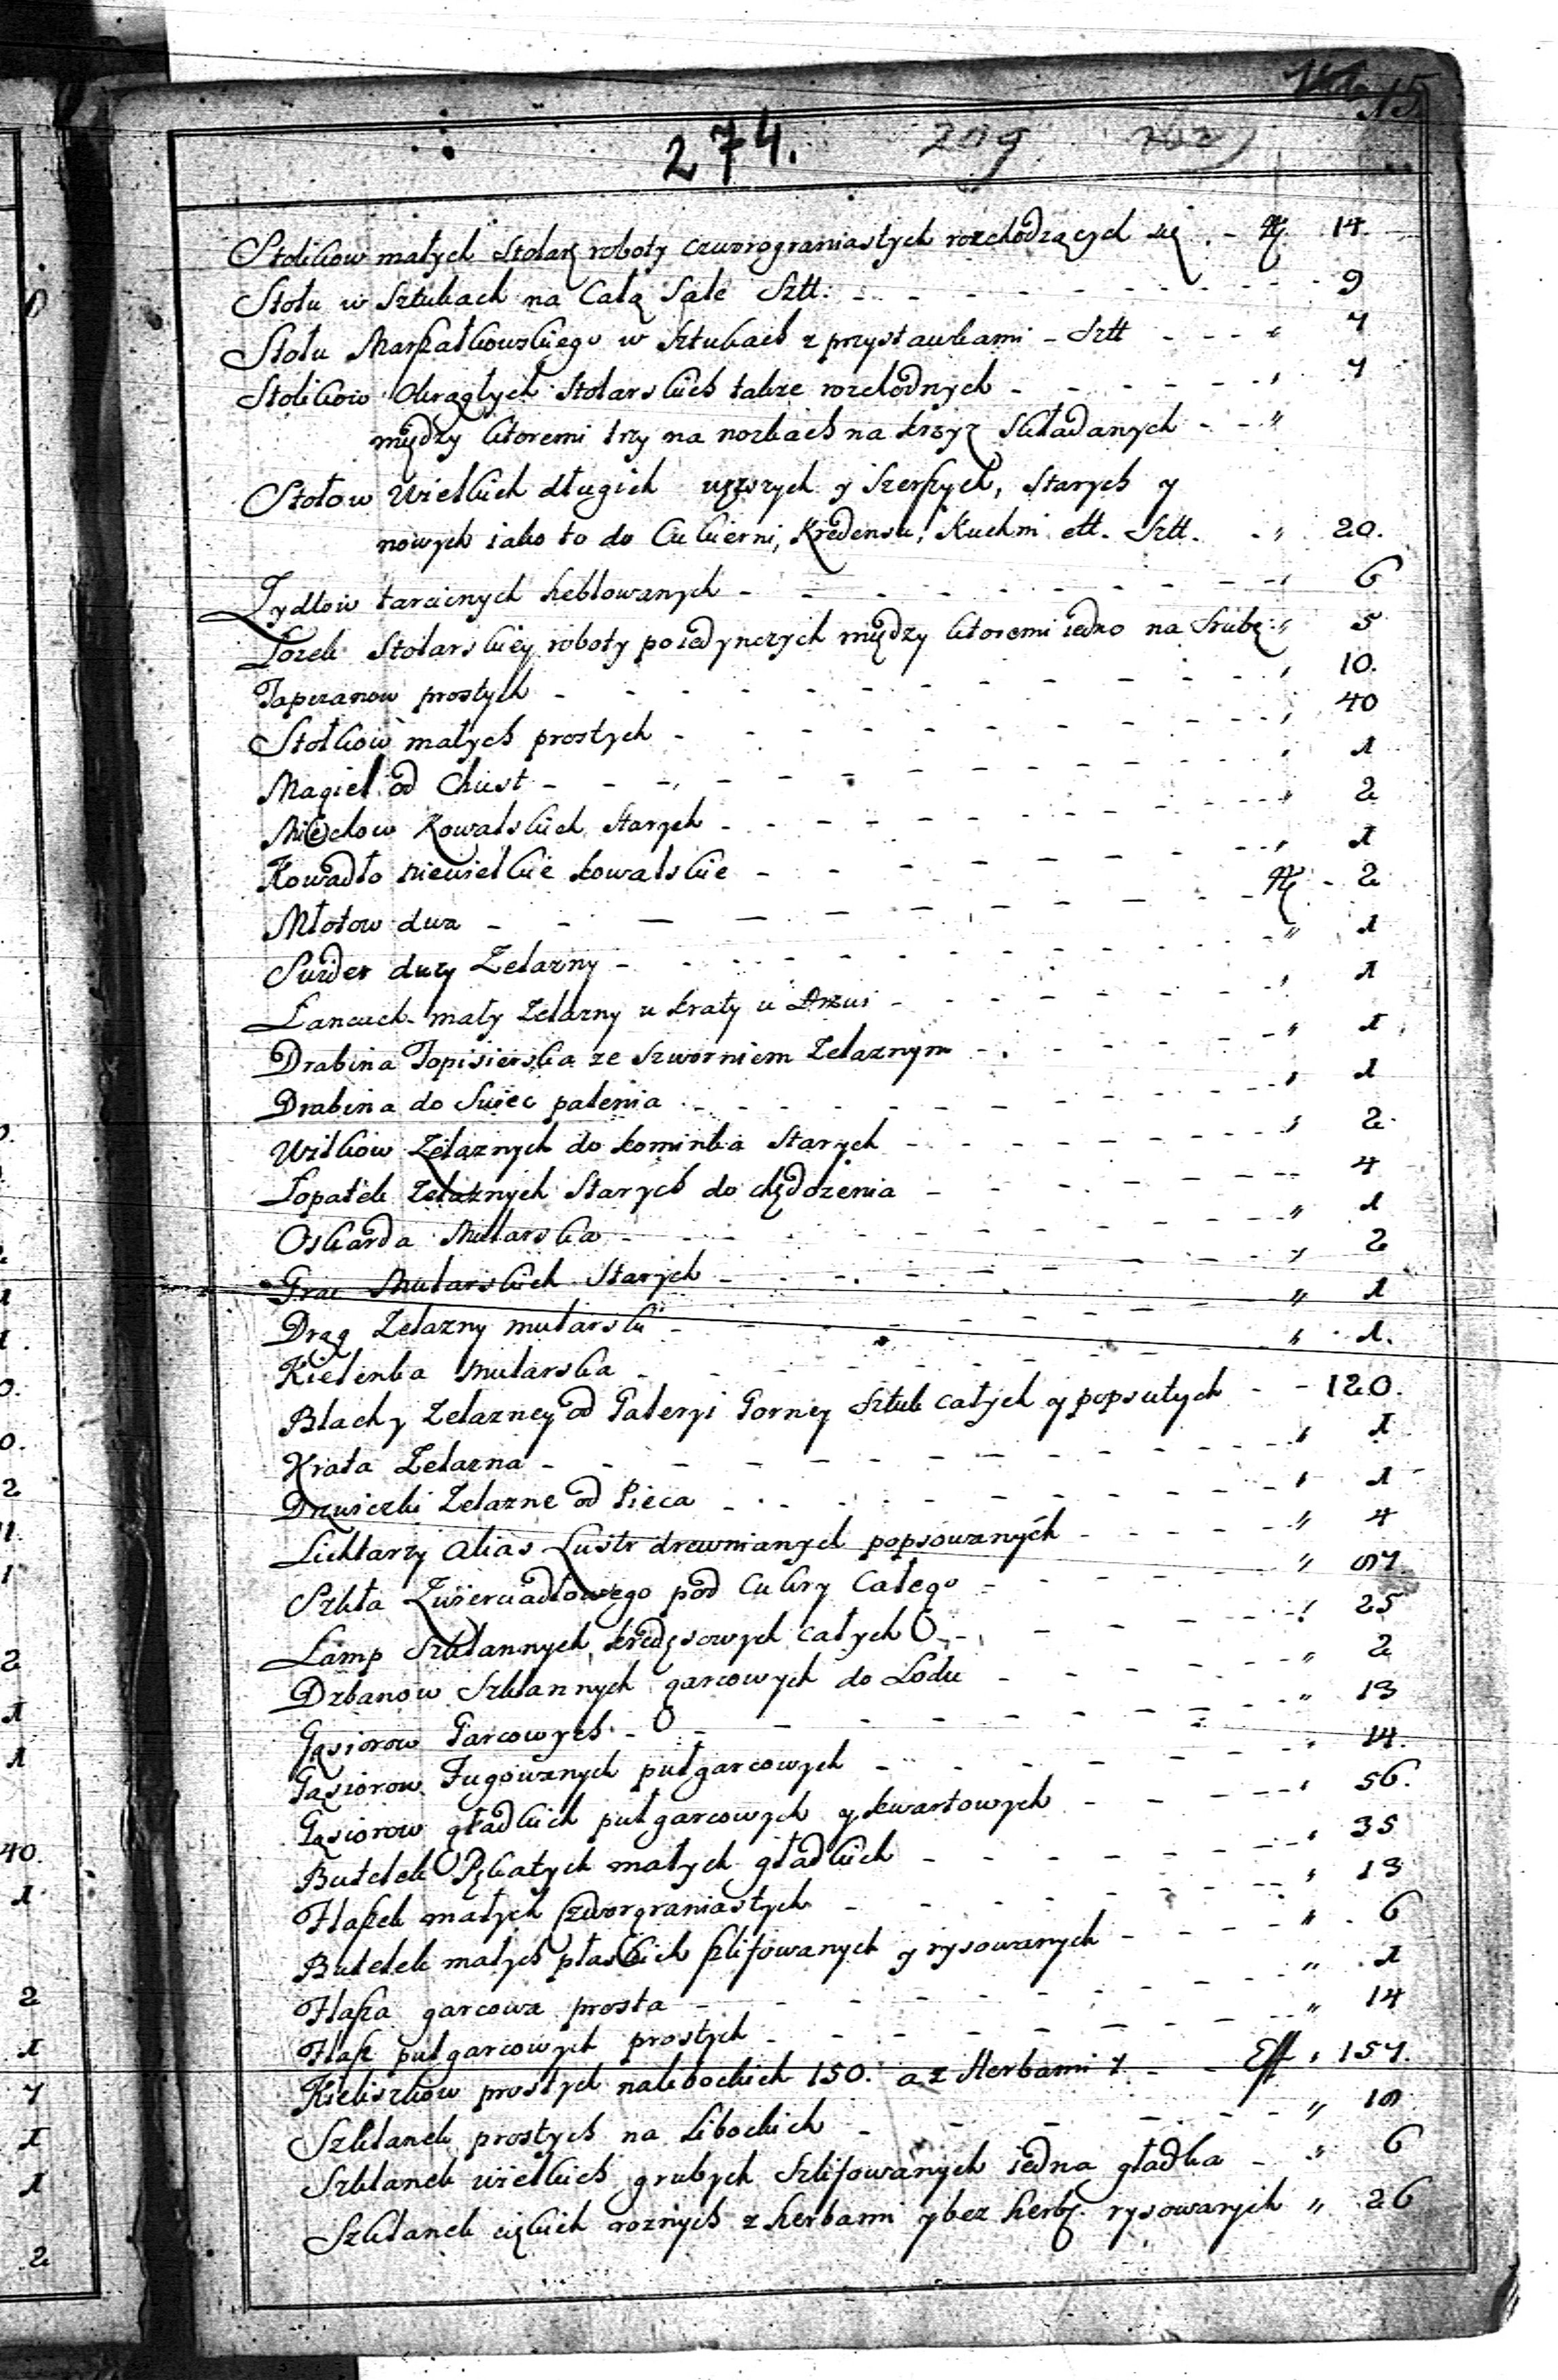 15
274. 209
Stolikow małych Stolar: roboty czworograniastych rozchodzących się - 14
Stołu w Sztukach na Całą Sale Sztt: - 9
Stołu Marszałkowskiego w Sztukach z przystawkami - Sztt - 7
Stolikow Okrągłych Stolarskich także rozchodnych - 7
między ktoremi trzy na nożkach na krzyż składanych - "
Stołow Wielkich długich uższych y Szerszych, Starych y
nowych iako to do Cukierni, Kredensu, Kuchni ett. Sztt. - " 20.
Zydlow tarcicnych heblowanych - 6
Łozek Stolarskiey roboty poiedynczych między ktoremi iedno na Srubę " 5
Tapczanow prostych - 10.
Stołkow małych prostych - 40
Magiel od Chust - 1
Miechow Kowalskich Starych - 2
Kowadło niewielkie kowalskie - 1
Młotow dwa - 2
Swider duży Zelazny - " 1
Łancuch mały Zelazny u kraty u Drzwi - 1
Drabina Topisierska ze Szworniem Zelaznym - " 1
Drabina do Swiec palenia - 1
Wilkow Zelaznych do kominka Starych - 2
Łopatek Zelaznych Starych do chędożenia - 4
Oskarda Mularska - " 1
Grac Mularskich Starych - 2
Drąg Zelazny mularski - " 1
Kielenka Mularska - 1.
Blachy Zelazney od Galeryi Gorney Sztuk całych y popsutych - 120.
Krata Zelazna - 1
Drzwiczki Zelazne od Pieca - 1
Lichtarzy alias Lustr drewnianych popsowanych - " 4
Szkła Zwierciadłowego pod Cukry Całego - "
Lamp Szklannych, całych - 25
Dzbanow Szklannych garcowych do Lodu - " 2
Gąsiorow Garcowych - " 13
Gąsiorow Fugowanych pułgarcowych - 14.
Gąsiorow gładkich pułgarcowych y kwartowych - 56.
Butelek Pękatych małych gładkich - 35
Flaszek małych czworgraniastych - 13
Butelek małych płaskich szlifowanych y rysowanych - " 6
Flasza garcowa prosta - " 1
Flasz pułgarcowych prostych - " 14
Kieliszkow prostych nalibockich 150. a z Herbami 7. - 157.
Szklanek prostych na Libockich - "
Szklanek wielkich grubych Szlifowanych iedna gładka - " 6
Szklanek rożnych z herbami y bez herb: rysowanych " 26